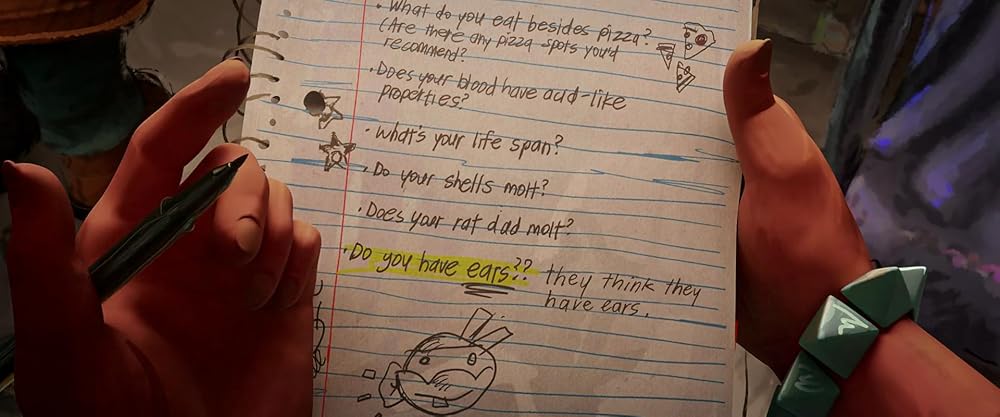 • What do you eat besides pizza?
(Are there any pizza spots you'd
recommend?
• Does your blood have acid-like
properties?
• What's your life span?
• Do your shells molt?
• Does your rat dad molt?
• Do you have ears?? they think they
have ears.